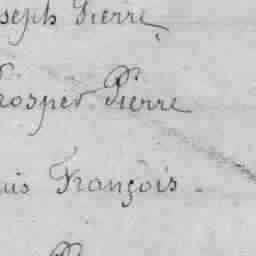 seph Pierre
rosper Pierre
uis François.